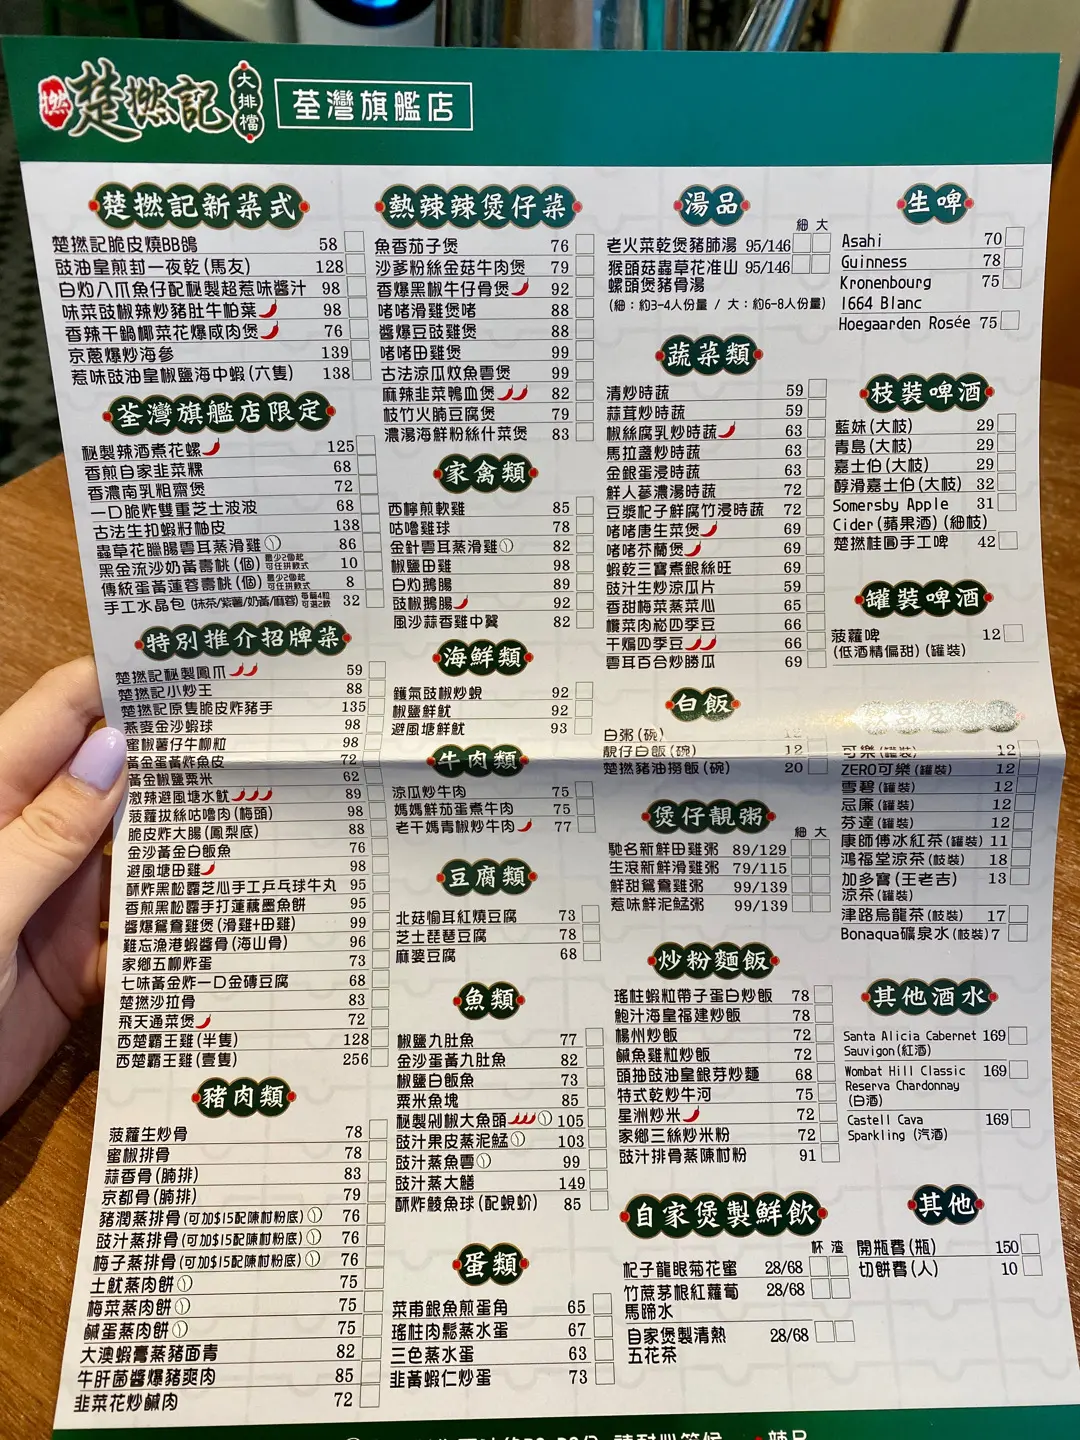 燃
楚撚記
大排檔
荃灣旗艦店
楚撚記新菜式
楚撚記脆皮燒BB鴿 58
豉油皇煎封一夜乾(馬友) 128
白灼八爪魚仔配秘製超惹味醬汁 98
味菜豉椒辣炒豬肚牛柏葉 98
香辣干鍋椰菜花爆咸肉煲 76
京蔥爆炒海參 139
惹味豉油皇椒鹽海中蝦(六隻) 138
荃灣旗艦店限定
秘製辣酒煮花螺 125
香煎自家韭菜粿 68
香濃南乳粗齋煲 72
一口脆炸雙重芝士波波 68
古法生扣蝦籽柚皮 138
蟲草花臘腸雲耳蒸滑雞 86
黑金流沙奶黃壽桃(個) 最少2個起 可任拼款式 10
傳統蛋黃蓮蓉壽桃(個) 最少2個起 可任拼款式 8
手工水晶包(抹茶/紫薯/奶黃/麻蓉) 每籠4粒 可選2款 32
特別推介招牌菜
楚撚記秘製鳳爪 59
楚撚記小炒王 88
楚撚記原隻脆皮炸豬手 135
燕麥金沙蝦球 98
蜜椒薯仔牛柳粒 98
黃金蛋黃炸魚皮 72
黃金椒鹽粟米 62
激辣避風塘水魷 89
菠蘿拔絲咕嚕肉(梅頭) 98
脆皮炸大腸(鳳梨底) 88
金沙黃金白飯魚 76
避風塘田雞 98
酥炸黑松露芝心手工乒乓球牛丸 95
香煎黑松露手打蓮藕墨魚餅 95
醬爆鴛鴦雞煲(滑雞+田雞) 99
難忘漁港蝦醬骨(海山骨) 96
家鄉五柳炸蛋 73
七味黃金炸一口金磚豆腐 68
楚撚沙拉骨 83
飛天通菜煲 72
西楚霸王雞(半隻) 128
西楚霸王雞(壹隻) 256
豬肉類
菠蘿生炒骨 78
蜜椒排骨 78
蒜香骨(腩排) 83
京都骨(腩排) 79
豬潤蒸排骨(可加$15配陳村粉底) 76
豉汁蒸排骨(可加$15配陳村粉底) 76
梅子蒸排骨(可加$15配陳村粉底) 76
土魷蒸肉餅 75
梅菜蒸肉餅 75
鹹蛋蒸肉餅 75
大澳蝦膏蒸豬面青 82
牛肝菌醬爆豬爽肉 85
韭菜花炒鹹肉 72
熱辣辣煲仔菜
魚香茄子煲 76
沙爹粉絲金菇牛肉煲 79
香爆黑椒牛仔骨煲 92
啫啫滑雞煲啫 88
醬爆豆豉雞煲 88
啫啫田雞煲 99
古法涼瓜炆魚雲煲 99
麻辣韭菜鴨血煲 82
枝竹火腩豆腐煲 79
濃湯海鮮粉絲什菜煲 83
家禽類
西檸煎軟雞 85
咕嚕雞球 78
金針雲耳蒸滑雞 82
椒鹽田雞 98
白灼鵝腸 89
豉椒鵝腸 92
風沙蒜香雞中翼 82
海鮮類
鑊氣豉椒炒蜆 92
椒鹽鮮魷 92
避風塘鮮魷 93
牛肉類
涼瓜炒牛肉 75
媽媽鮮茄蛋煮牛肉 75
老干媽青椒炒牛肉 77
豆腐類
北菇榆耳紅燒豆腐 73
芝士琵琶豆腐 78
麻婆豆腐 68
魚類
椒鹽九肚魚 77
金沙蛋黃九肚魚 82
椒鹽白飯魚 73
粟米魚塊 85
秘製剁椒大魚頭 105
豉汁果皮蒸泥鯭 103
豉汁蒸魚雲 99
豉汁蒸大鱔 149
酥炸鯪魚球(配蜆蚧) 85
蛋類
菜甫銀魚煎蛋角 65
瑤柱肉鬆蒸水蛋 67
三色蒸水蛋 63
韭黃蝦仁炒蛋 73
湯品
細 大
老火菜乾煲豬肺湯 95/146
猴頭菇蟲草花准山 95/146
螺頭煲豬骨湯
(細：約3-4人份量 / 大：約6-8人份量)
蔬菜類
清炒時蔬 59
蒜茸炒時蔬 59
椒絲腐乳炒時蔬 63
馬拉盞炒時蔬 63
金銀蛋浸時蔬 63
鮮人蔘濃湯時蔬 72
豆漿杞子鮮腐竹浸時蔬 72
啫啫唐生菜煲 69
啫啫芥蘭煲 69
蝦乾三寶煮銀絲旺 69
豉汁生炒涼瓜片 59
香甜梅菜蒸菜心 65
欖菜肉崧四季豆 66
干煸四季豆 66
雲耳百合炒勝瓜 69
白飯
白粥(碗) 12
靚仔白飯(碗) 12
楚撚豬油撈飯(碗) 20
煲仔靚粥
細 大
馳名新鮮田雞粥 89/129
生滾新鮮滑雞粥 79/115
鮮甜鴛鴦雞粥 99/139
惹味鮮泥鯭粥 99/139
炒粉麵飯
瑤柱蝦粒帶子蛋白炒飯 78
鮑汁海皇福建炒飯 78
楊州炒飯 72
鹹魚雞粒炒飯 72
頭抽豉油皇銀芽炒麵 68
特式乾炒牛河 75
星洲炒米 72
家鄉三絲炒米粉 72
豉汁排骨蒸陳村粉 91
自家煲製鮮飲
杯 渣
杞子龍眼菊花蜜 28/68
竹蔗茅根紅蘿蔔 28/68
馬蹄水
自家煲製清熱 28/68
五花茶
生啤
Asahi 70
Guinness 78
Kronenbourg 75
1664 Blanc
Hoegaarden Rosée 75
枝裝啤酒
藍妹(大枝) 29
青島(大枝) 29
嘉士伯(大枝) 29
醇滑嘉士伯(大枝) 32
Somersby Apple 31
Cider(蘋果酒)(細枝)
楚撚桂圓手工啤 42
罐裝啤酒
菠蘿啤 12
(低酒精偏甜)(罐裝)
可樂(罐裝) 12
ZERO可樂(罐裝) 12
雪碧(罐裝) 12
忌廉(罐裝) 12
芬達(罐裝) 12
康師傅冰紅茶(罐裝) 11
鴻福堂涼茶(枝裝) 18
加多寶(王老吉) 13
涼茶(罐裝)
津路烏龍茶(枝裝) 17
Bonaqua礦泉水(枝裝) 7
其他酒水
Santa Alicia Cabernet 169
Sauvigon(紅酒)
Wombat Hill Classic 169
Reserva Chardonnay
(白酒)
Castell Cava 169
Sparkling (汽酒)
其他
開瓶費(瓶) 150
切餅費(人) 10